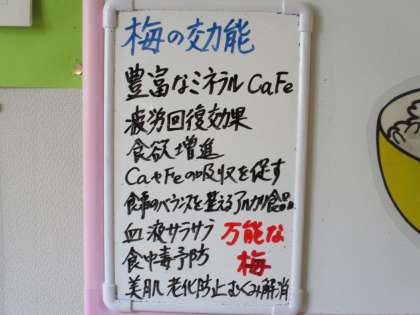 梅の効能
豊富なミネラル CaFe
疲労回復効果
食欲増進
CaやFeの吸収を促す
食事のバランスを整えるアルカリ食品
血液サラサラ
食中毒予防
万能な
梅
美肌 老化防止 むくみ解消